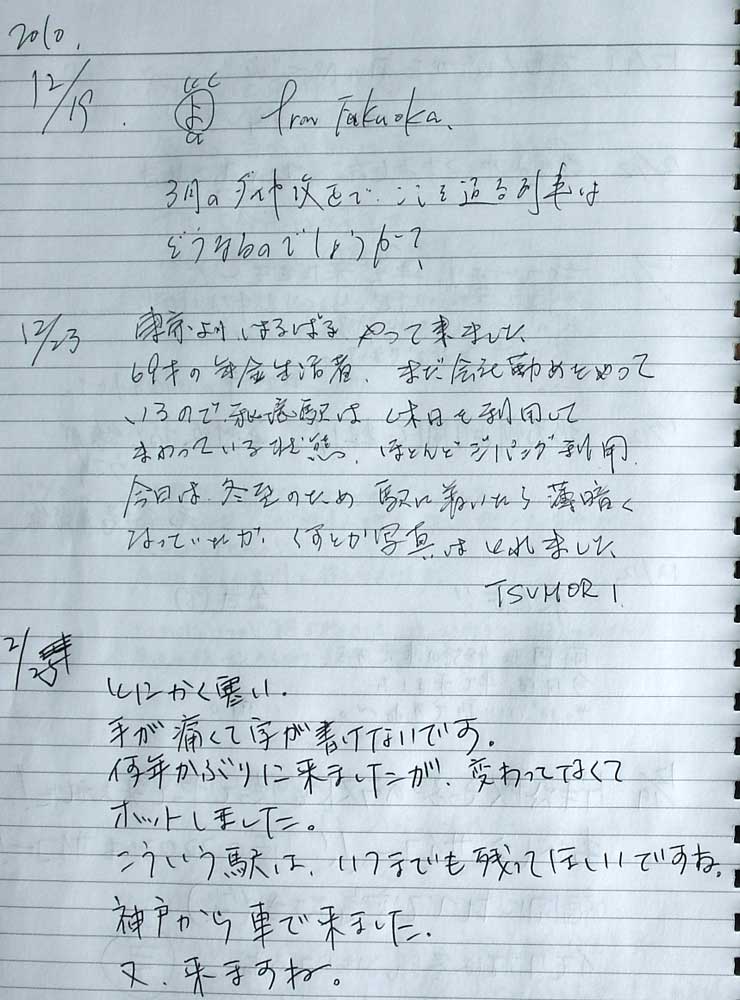 2010.
12/19. よ from Fukuoka.
3月のダイヤ改正で、ここを通る列車は
どうなるのでしょうかー?
12/23 東京よりはるばる やって来ました
69才の年金生活者、まだ会社勤めをやって
いるので秘境駅は 休日を利用して
まわっている状態。ほとんどジパング利用
今日は、冬至のため 駅に着いたら薄暗く
なっていたが、なんとか写真はとれました
TSUMORI
2/25 とにかく寒い。
手が痛くて字が書けないです。
何年かぶりに来ましたが、変わってなくて
ホットしました。
こういう駅は、いつまでも残ってほしいですね。
神戸から車で来ました。
又、来ますね。